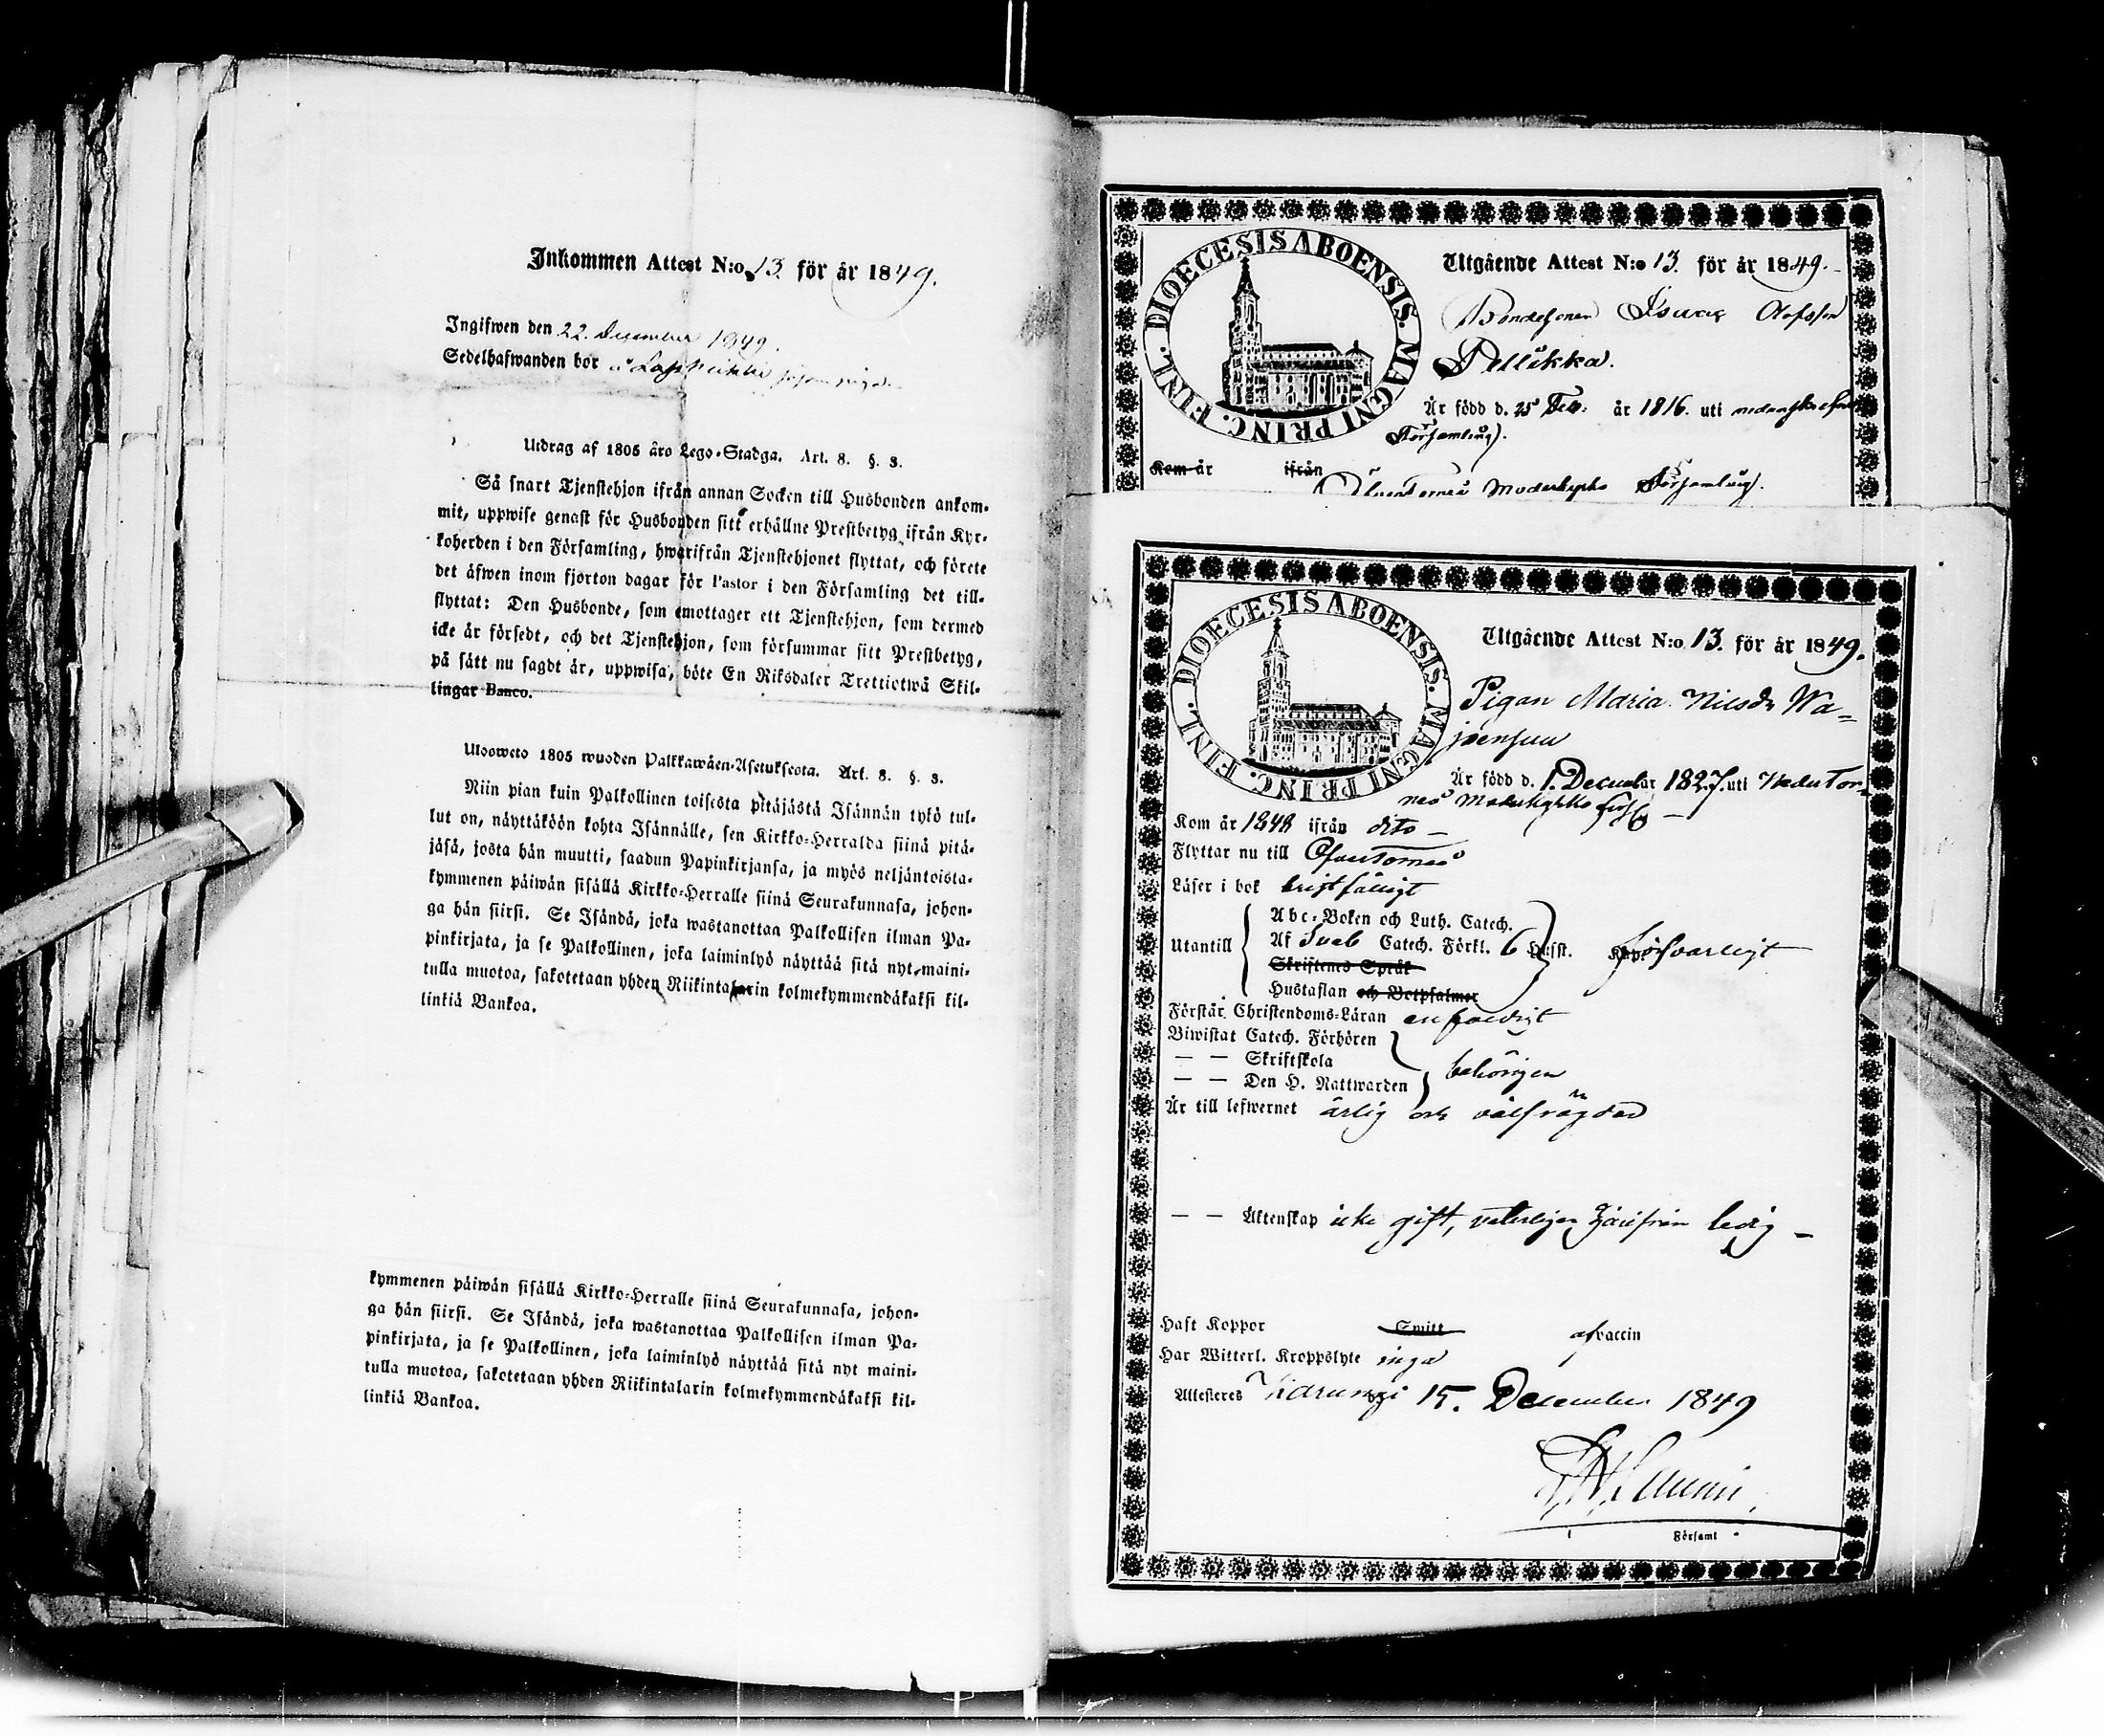 Inkommen Attest N:o 13. för år 1849.
Ingifwen den 22. December 1849.
Sedelhafwanden bor
Utdrag af 1805 års Lego-Stadga. Art. 8. §. 3.
Så snart Tjenstehjon ifrån annan Socken till Husbonden ankom-
mit, uppwise genast för Husbonden sitt erhållne Prestbetyg ifrån Kyr-
koherden i den Församling, hwarifrån Tjenstehjonet flyttat, och förete
det äfwen inom fjorton dagar för Pastor i den Församling det till-
flyttat: Den Husbonde, som emottager ett Tjenstehjon, som dermed
icke är försedt, och det Tjenstehjon, som försummar sitt Prestbetyg,
på sätt nu sagdt är, uppwisa, böte En Riksdaler Trettiotwå Skil-
lingar Banco.
Ulosweto 1805 wuoden Palkkawäen-Asetuksesta. Art. 8. §. 3.
Niin pian kuin Palkollinen toisesta pitäjästä Isännän tykö tul-
lut on, näyttäköön kohta Isännälle, sen Kirkko-Herralda siinä pitä-
jäsä, josta hän muutti, saadun Papinkirjansa, ja myös neljäntoista-
kymmenen päiwän sisällä Kirkko-Herralle siinä Seurakunnasa, johon-
ga hän siirsi. Se Isändä, joka wastanottaa Palkollisen ilman Pa-
pinkirjata, ja se Palkollinen, joka laiminlyö näyttää sitä nyt maini-
tulla muotoa, sakotetaan yhden Riikintalarin kolmekymmendäkaksi kil-
linkiä Bankoa.
kymmenen päiwän sisällä Kirkko-Herralle siinä Seurakunnasa, johon-
ga hän siirsi. Se Isändä, joka wastanottaa Palkollisen ilman Pa-
pinkirjata, ja se Palkollinen, joka laiminlyö näyttää sitä nyt maini-
tulla muotoa, sakotetaan yhden Riikintalarin kolmekymmendäkaksi kil-
linkiä Bankoa.
DIOECESIS ABOENSIS. MAGNI PRINC. FINL.
Utgående Attest N:o 13. för år 1849.
Bondesonen Isaac Olofsson
Pellikka.
Är född d. 25 Feb. år 1816. uti
Församling.
Kom år ifrån
Moderkyrko Församling.
DIOECESIS ABOENSIS. MAGNI PRINC. FINL.
Utgående Attest N:o 13. för år 1849.
Pigan Maria Nilsdr Wa=
joensuu
Är född d. 1. December 1827. uti NederTor-
neå Moderkyrko
Kom år 1848 ifrån dito
Flyttar nu till ÖfverTorneå
Läser i bok bristfälligt
Utantill
Abc-Boken och Luth. Catech.
Af Sveb Catech. Förkl. 6 H.sst. försvarligt
Skriftens Språk
Hustaflan och Botpsalmer
Förstår Christendoms-Läran enfaldigt
Biwistat Catech. Förhören
— — Skriftskola
— — Den H. Nattwarden behörigen
Är till lefwernet ärlig och välfrägdad
— — Äktenskap icke gift, veterligen härifrån ledig
Haft Koppor Smitt af vaccin
Har Witterl. Kroppslyte inga
Attesteres Karungi 15. December 1849
Församl